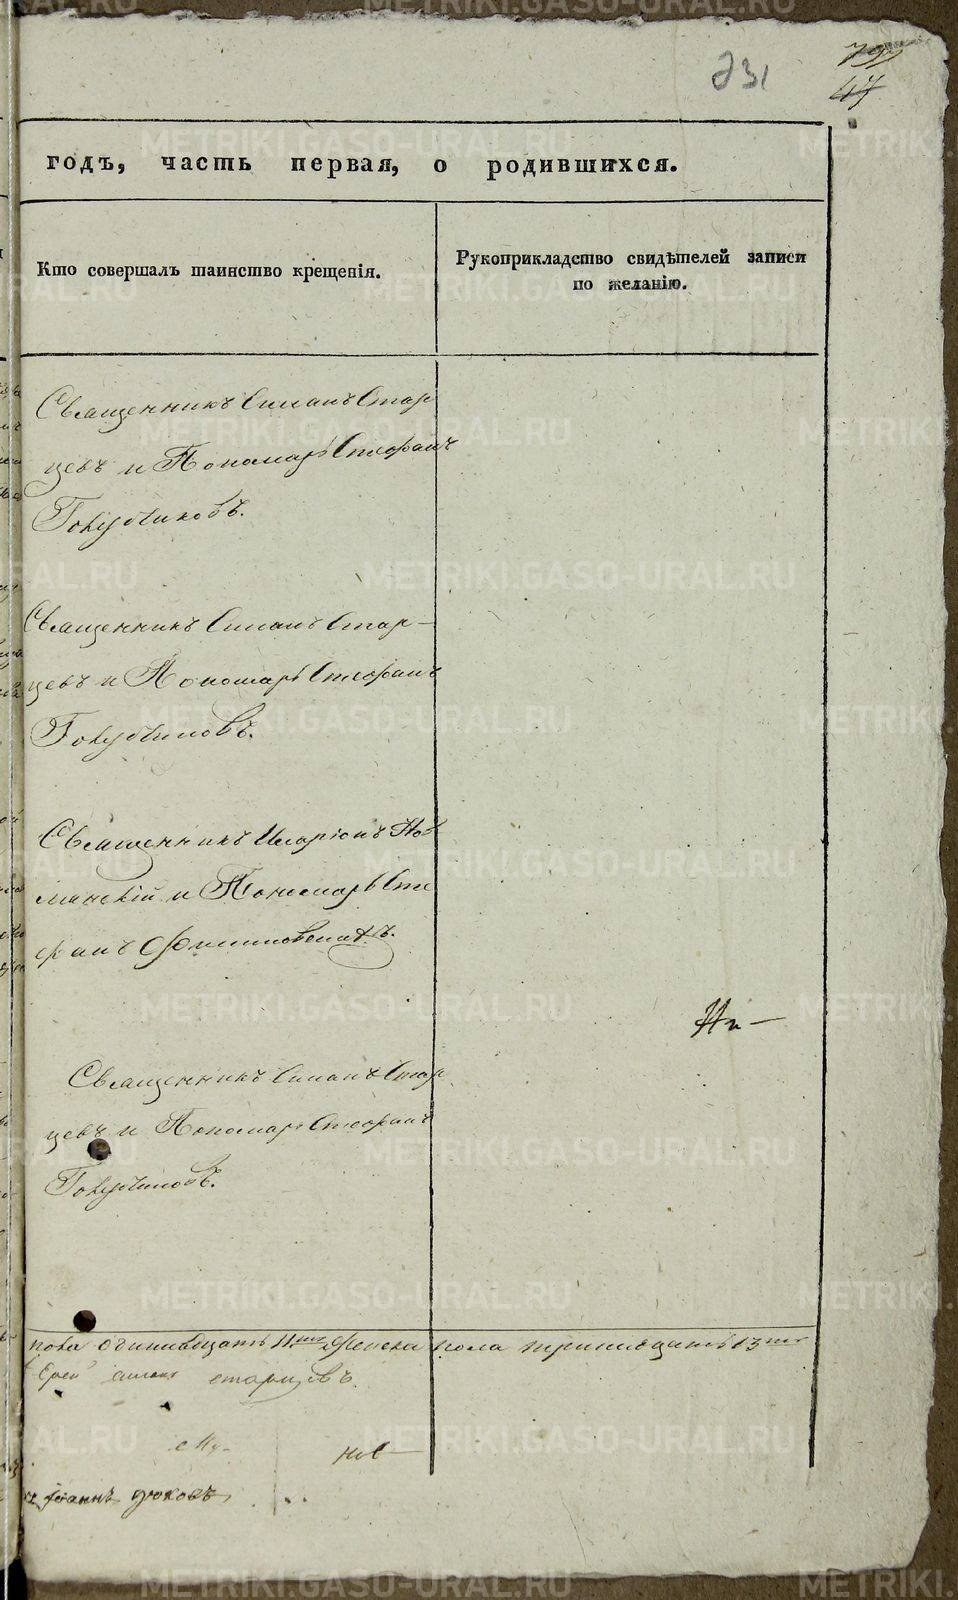 231
47
годъ, часть первая, о родившихся.
Кто совершалъ таинство крещенія.
Рукоприкладство свидѣтелей записи
по желанію.
Священникъ Симанъ Стар
цевъ и Пономарь Стефанъ
Голубчиковъ.
Священникъ Симанъ Стар-
цевъ и Пономарь Стефанъ
Голубчиковъ.
Священникъ Иларіонъ
и Пономарь Сте
фанъ
Священникъ Симанъ Стар
цевъ и Пономарь Стефанъ
Голубчиковъ.
пола одиннадцать 11ть женска пола тринадцать 13ть
Іерей Симанъ Старцевъ
Іоаннъ Дюковъ
METRIKI.GASO-URAL.RU